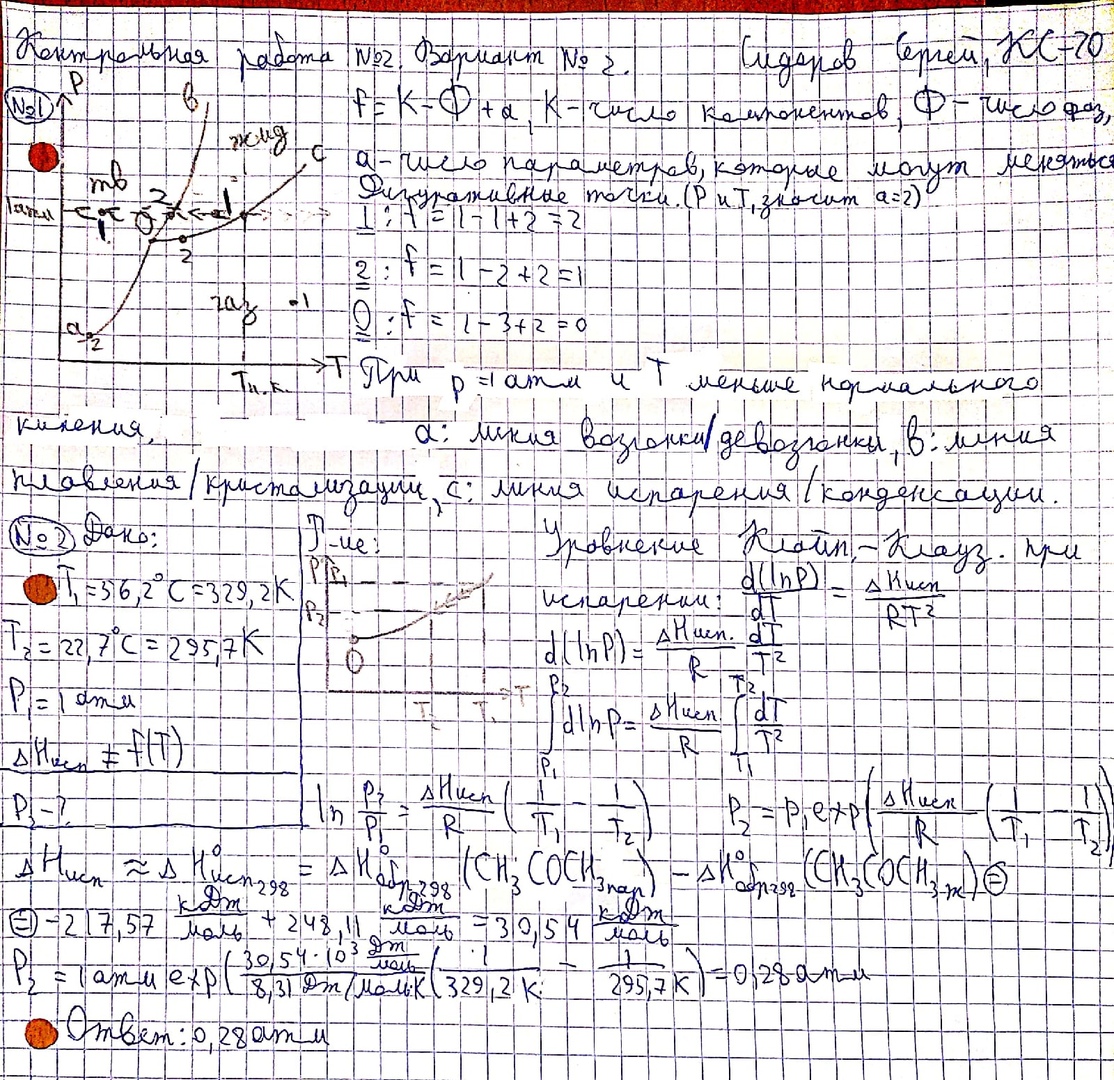 Контрольная работа №2. Вариант № 2. Сидоров Сергей, КС-20
№1
P в
f = К - Ф + а, К - число компонентов, Ф - число фаз,
жид c
а - число параметров, которые могут меняться
тв
Фигуративные точки. (P и T, значит a=2)
1 атм 1 2 0 1
1: f = 1-1+2=2
2
2: f = 1-2+2=1
газ 1
0: f = 1-3+2=0
а 2
T
Tн.к.
При p=1 атм и T меньше нормального
кипения.
a: линия возгонки/девозгонки, в: линия
плавления/кристализации, c: линия испарения/конденсации.
№2 Дано:
T₁=56,2°C=329,2K
T₂=22,7°C=295,7K
P₁=1 атм
ΔHисп ≠ f(T)
P₂-?
Р-ие:
P P₁
P₂
0
T₂ T₁ T
Уровнение Клайп.-Клауз. при
испарении: d(lnP)/dT = ΔHисп/RT²
d(lnP) = ΔHисп./R dT/T²
∫P₁P₂ dlnP = ΔHисп/R ∫T₁T₂ dT/T²
ln P₂/P₁ = ΔHисп/R (1/T₁ - 1/T₂) P₂ = P₁exp(ΔHисп/R (1/T₁ - 1/T₂))
ΔHисп ≈ ΔH°исп298 = ΔH°обр298 (CH₃COCH₃пар) - ΔH°обр298 (CH₃COCH₃-ж) =
= -217,57 кДж/моль + 248,11 кДж/моль = 30,54 кДж/моль
P₂ = 1 атм exp(30,54·10³ Дж/моль / 8,31 Дж/моль·K (1/329,2K - 1/295,7K)) = 0,28 атм
Ответ: 0,28 атм